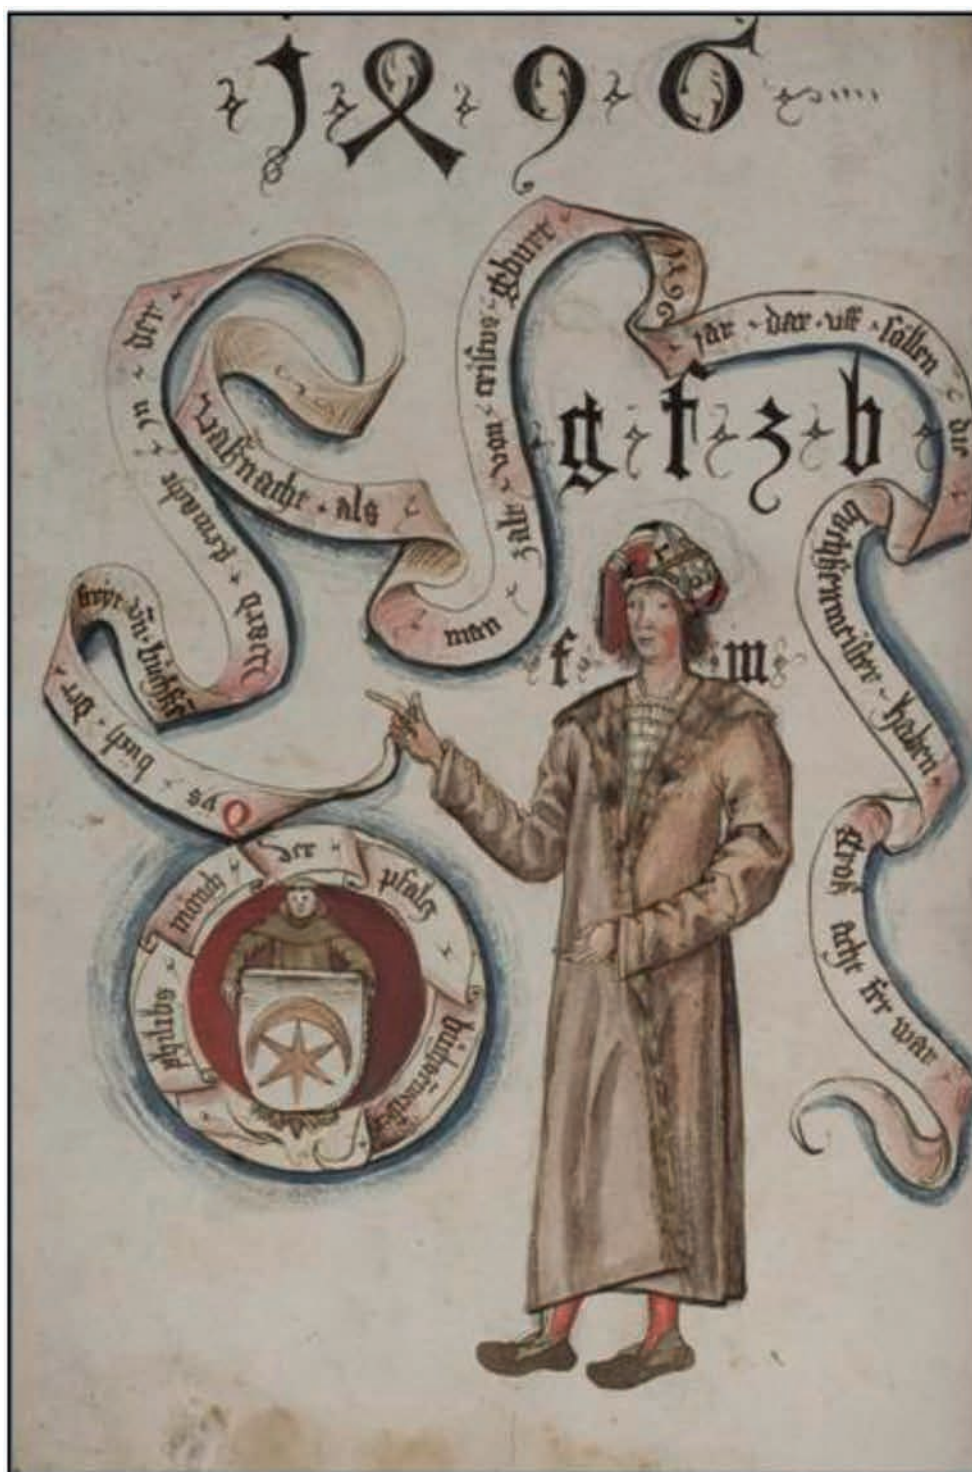 1496
g · f · z · b
f · m
Das · buch · der
stryt · vñ · buchßñ
ward · gemacht · in · der
vaßnacht · als
man
zalt · von · cristus · geburt
1496
iar · dar · uff · sallen · die
buchßenmeister · halten
groß acht fer war
philips · mönch · der pfalcz · büchsenmeister